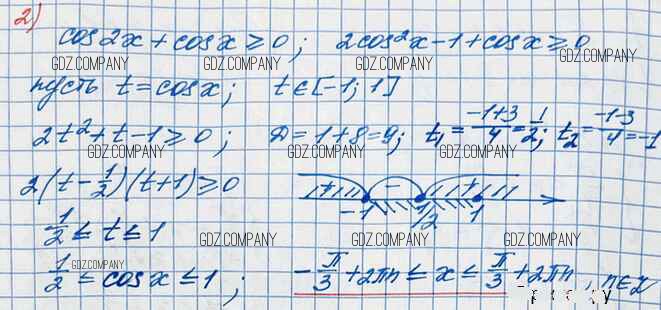 2)
cos2x + cosx ≥ 0; 2cos²x - 1 + cosx ≥ 0
GDZ.COMPANY GDZ.COMPANY GDZ.COMPANY
пусть t = cosx; t ∈ [-1; 1]
GDZ.COMPANY GDZ.COMPANY
2t² + t - 1 ≥ 0; D = 1 + 8 = 9; t₁ = (-1+3)/4 = 1/2; t₂ = (-1-3)/4 = -1
GDZ.COMPANY GDZ.COMPANY GDZ.COMPANY
2(t - 1/2)(t + 1) ≥ 0
+ - +
-1 1/2 1
1/2 ≤ t ≤ 1
GDZ.COMPANY GDZ.COMPANY
GDZ.COMPANY
1/2 ≤ cosx ≤ 1; -π/3 + 2πn ≤ x ≤ π/3 + 2πn, n∈Z
GDZ.COMPANY